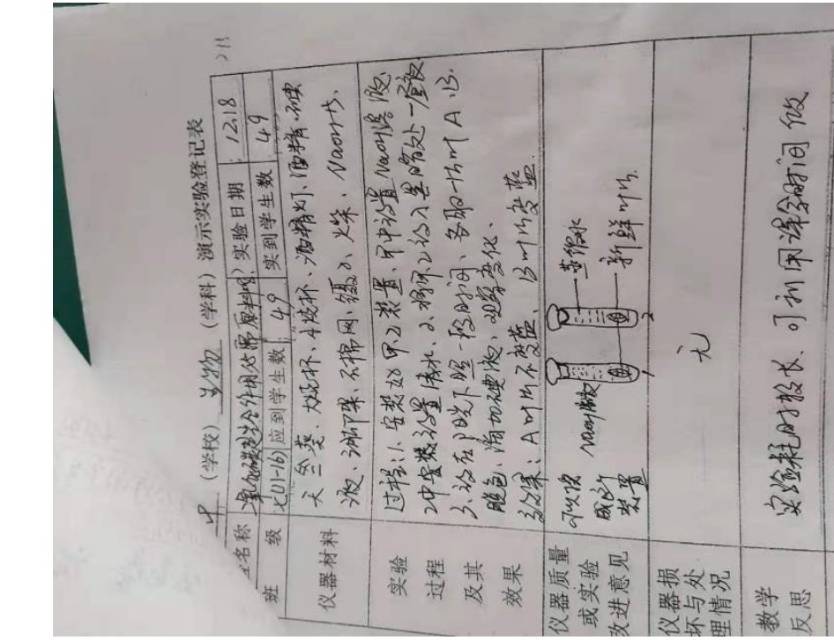 中 (学校) 生物 (学科) 演示实验登记表
名称 二氧化碳是光合作用必需原料吗 实验日期 12.18
班 级 七(11-16) 应到学生数 49 实到学生数 49
仪器材料 天竺葵、大烧杯、小烧杯、酒精灯、酒精、碘
液、三脚架、石棉网、镊子、火柴、NaOH、
实验 过程:1、安装如甲、乙装置、甲中放置NaOH溶液
过程 乙中安装放置清水、2、将甲乙放入黑暗处一昼夜
及其 3、放在阳光下照一段时间、各取一片叶A、B、
脱色、滴加碘液、观察变化、
效果 效果:A叶片不变蓝、B叶片变蓝、
仪器质量
或实验
改进意见
可以改
成的
装置
NaOH溶液
蒸馏水
新鲜叶片
1
2
仪器损
坏与处
理情况
无
教学
反思
实验耗时较长、可利用课余时间做